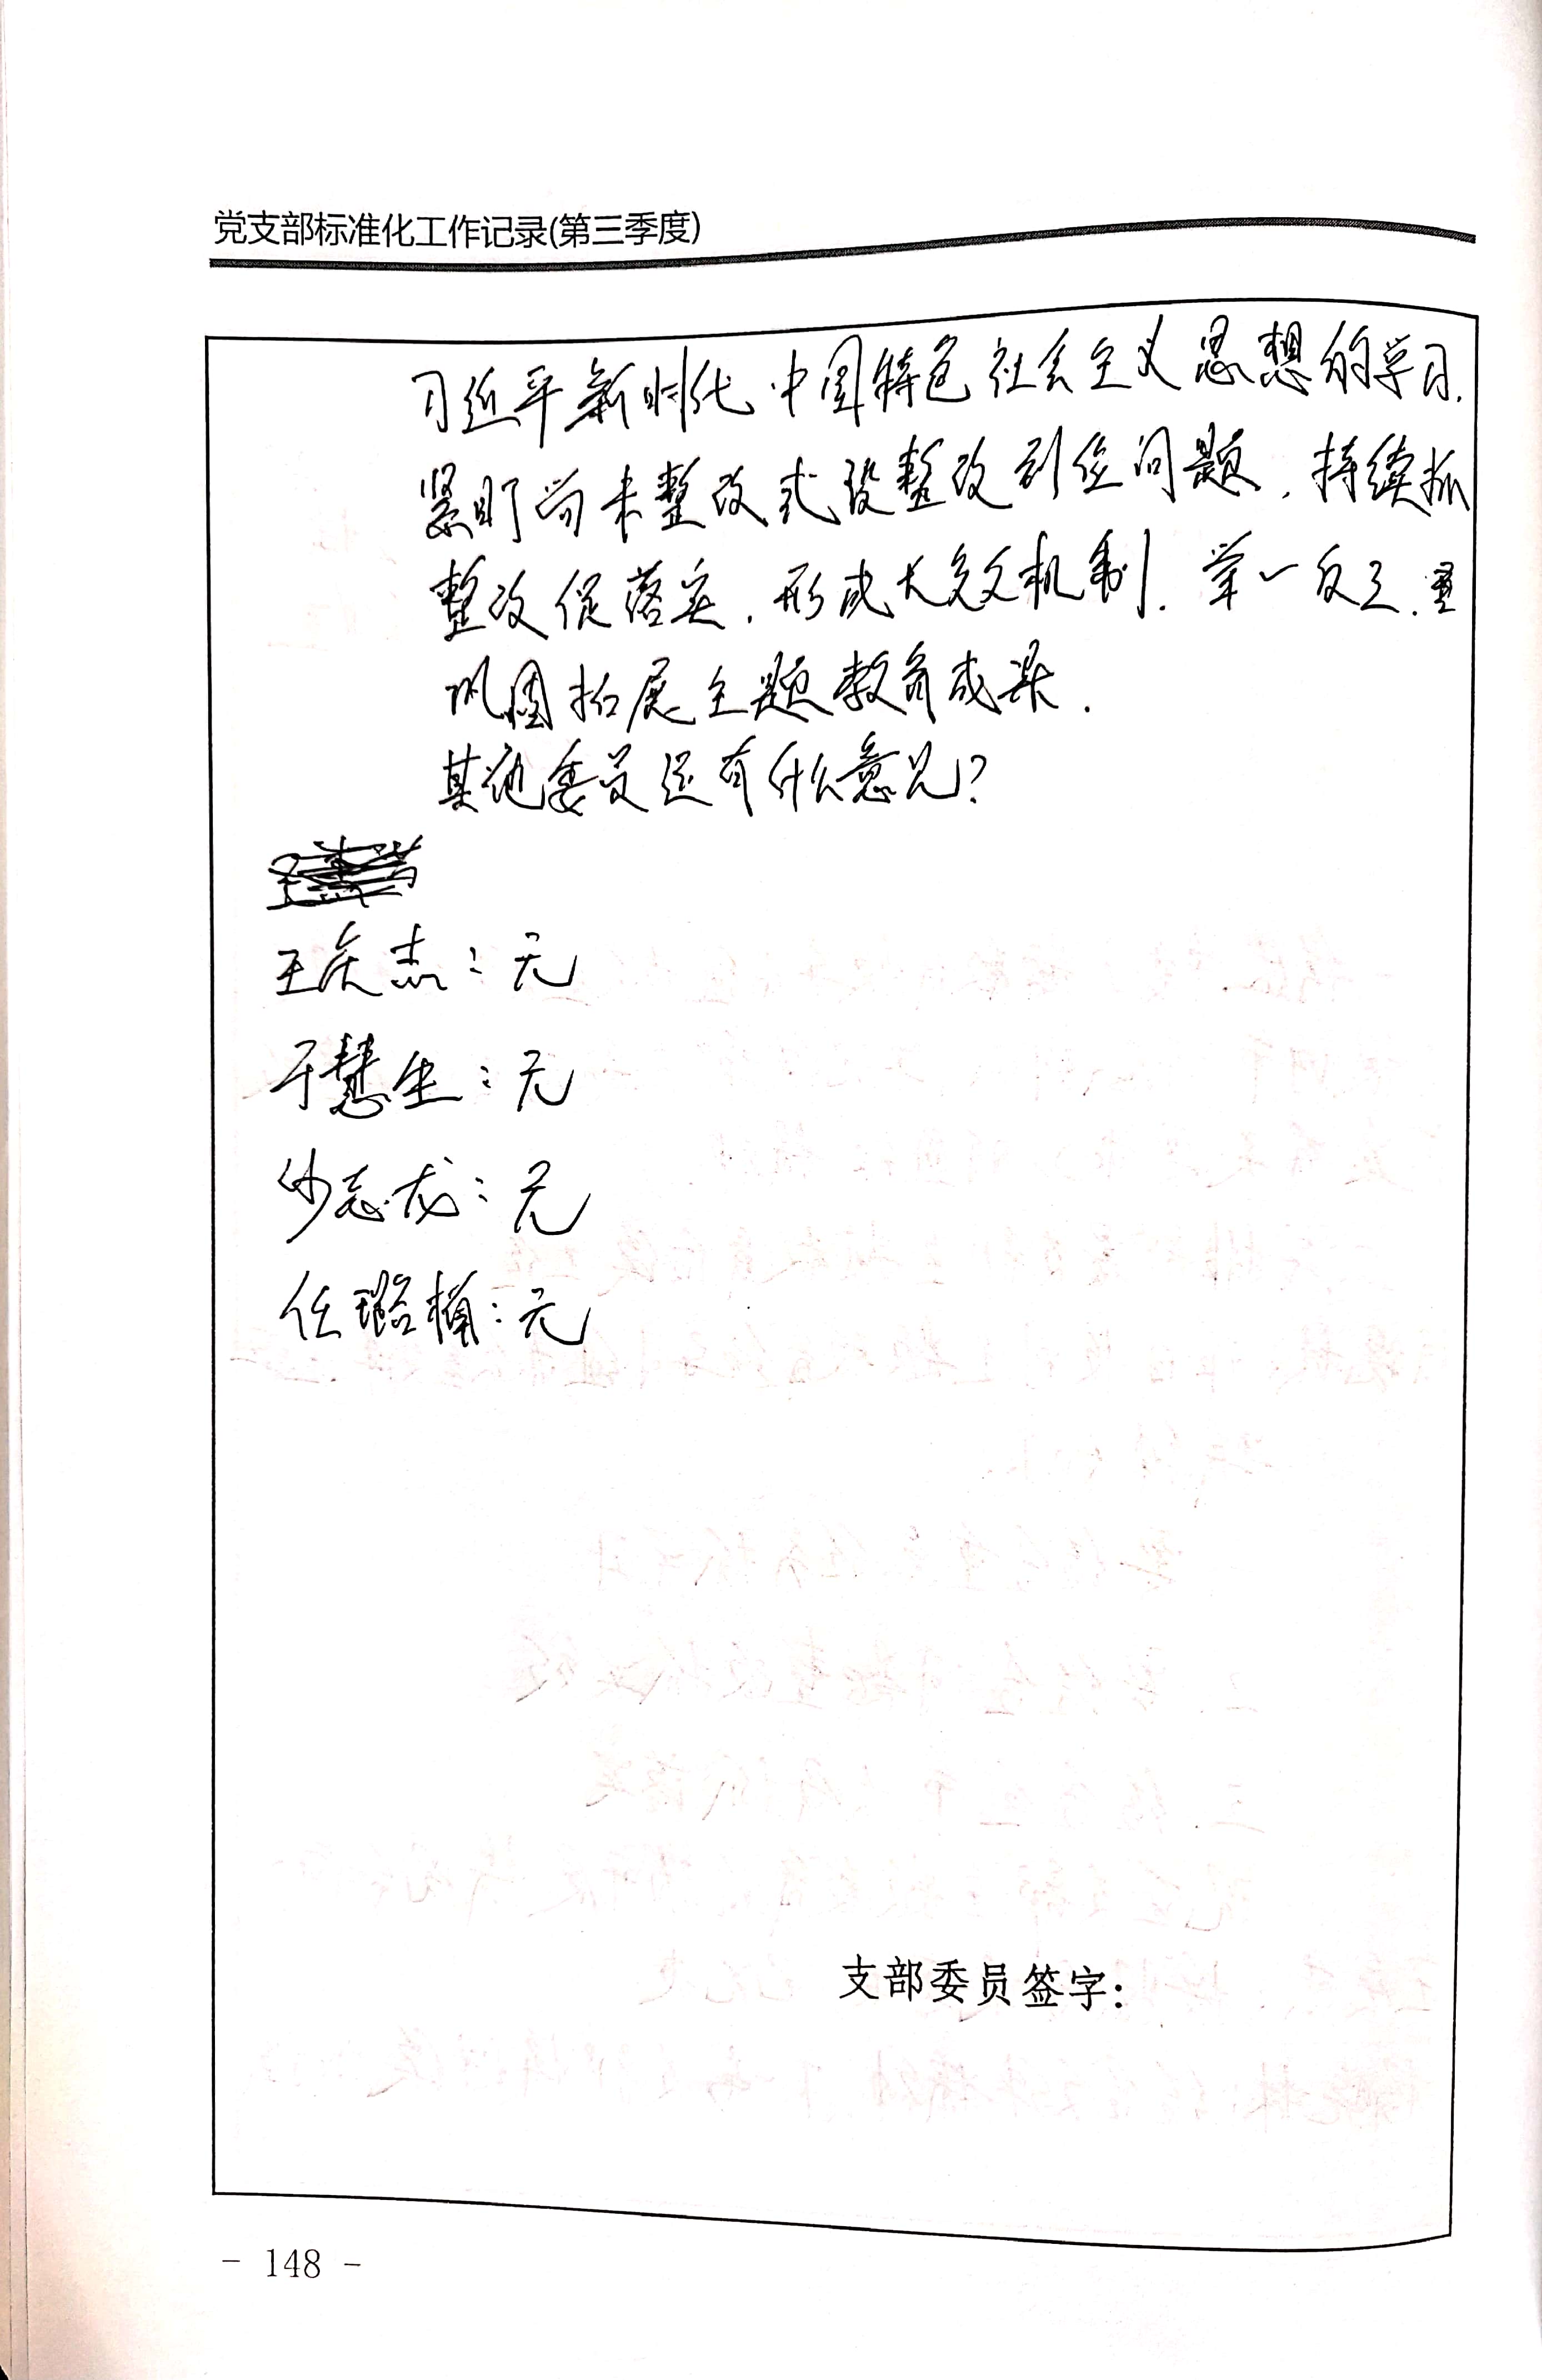 党支部标准化工作记录(第三季度)
习近平新时代中国特色社会主义思想的学习.
紧盯尚未整改或没整改到位问题，持续抓
整改促落实.形成长效机制.举一反三.
巩固拓展主题教育成果.
其他委员还有什么意见?
王庆杰：无
于慧生：无
沙志龙：无
任璐楠：无
支部委员签字：
- 148 -